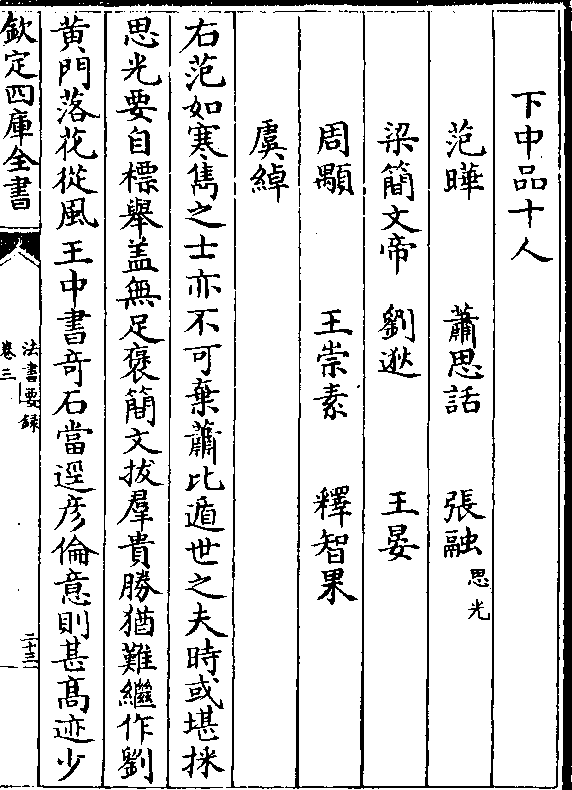 下中品十人
范曄 蕭思話 張融思光
梁簡文帝 劉逖 王晏
周顒 王崇素 釋智果
虞綽
右范如寒雋之士亦不可棄蕭比遁世之夫時或堪採
思光要自標舉盖無足褒簡文拔羣貴勝猶難繼作劉
黄門落花從風王中書竒石當逕彦倫意則甚髙迹少
欽定四庫全書
法書要録
卷三
二十三